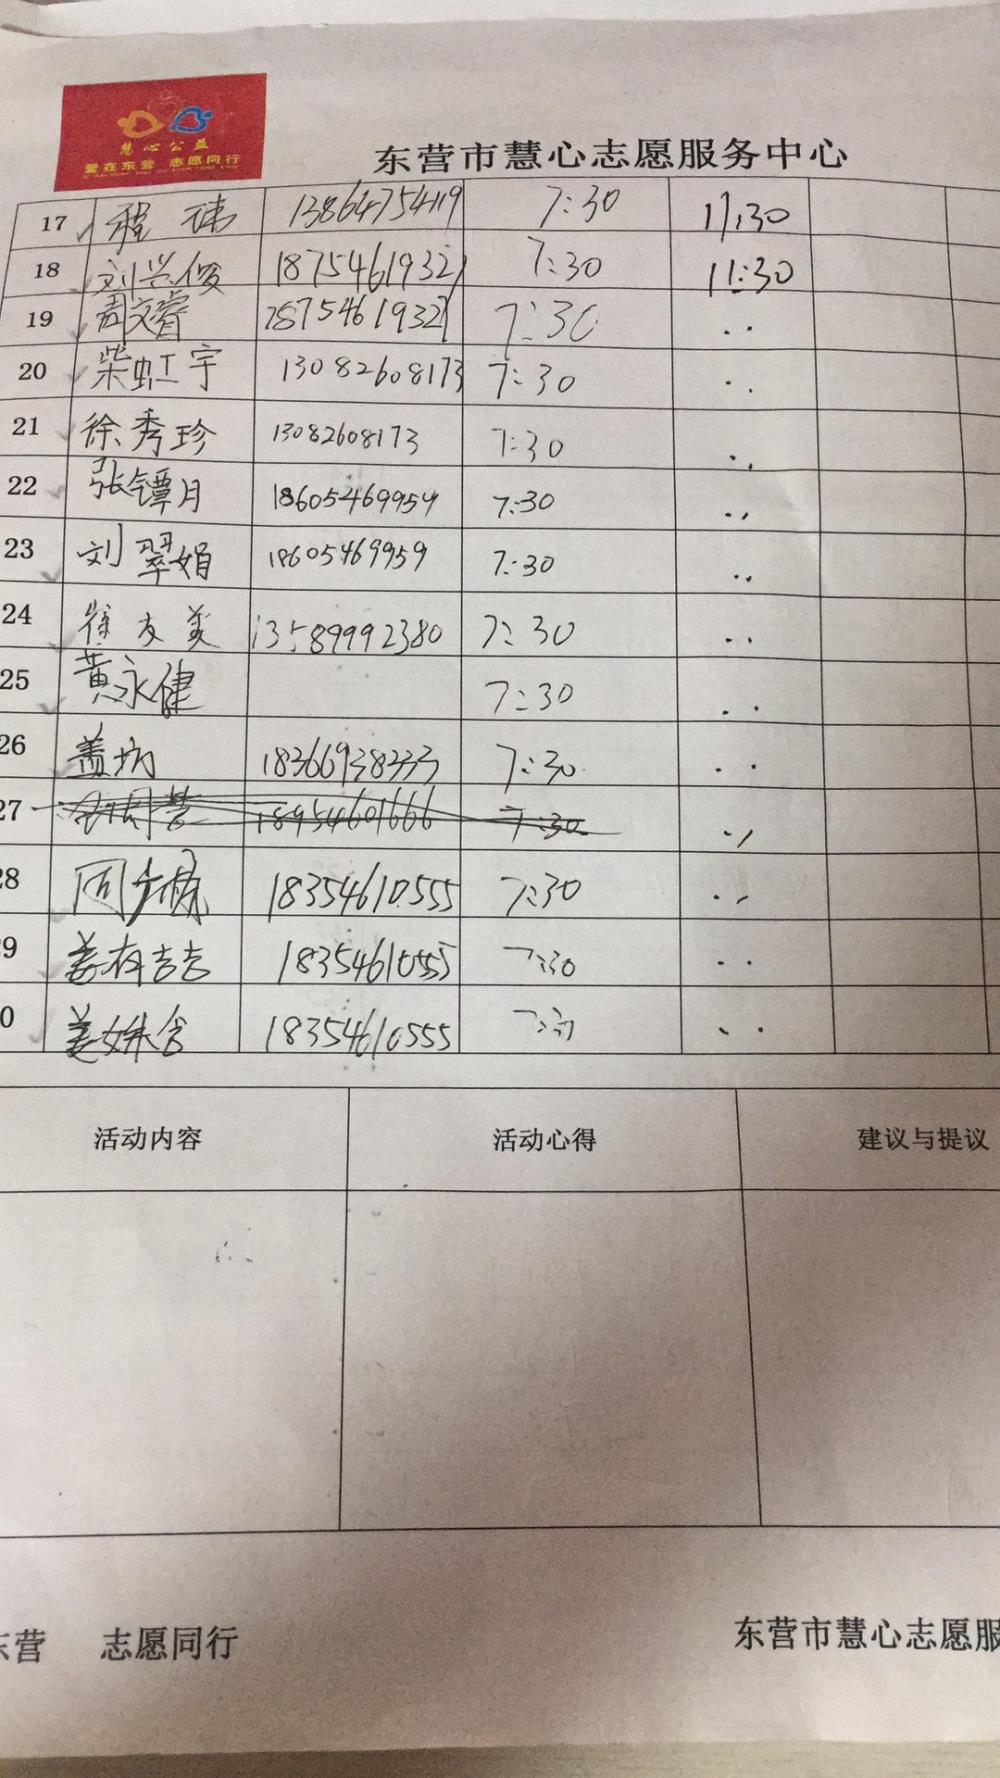 慧心公益
爱在东营 志愿同行
东营市慧心志愿服务中心
17 程 玮 13864754119 7:30 11:30
18 刘兴俊 18754619321 7:30 11:30
19 周文睿 18754619321 7:30 ..
20 柴虹宇 13082608173 7:30 ..
21 徐秀珍 13082608173 7:30 ..
22 张镡月 18605469959 7:30 ..
23 刘翠娟 18605469959 7:30 ..
24 徐友美 13589992380 7:30 ..
25 黄永健 7:30 ..
26 盖 18366938333 7:30 ..
27 18954601666 7:30 ..
28 18354610555 7:30 ..
9 姜存吉吉 18354610555 7:30 ..
0 姜姝含 18354610555 7:30 ..
活动内容 活动心得 建议与提议
东营 志愿同行 东营市慧心志愿服